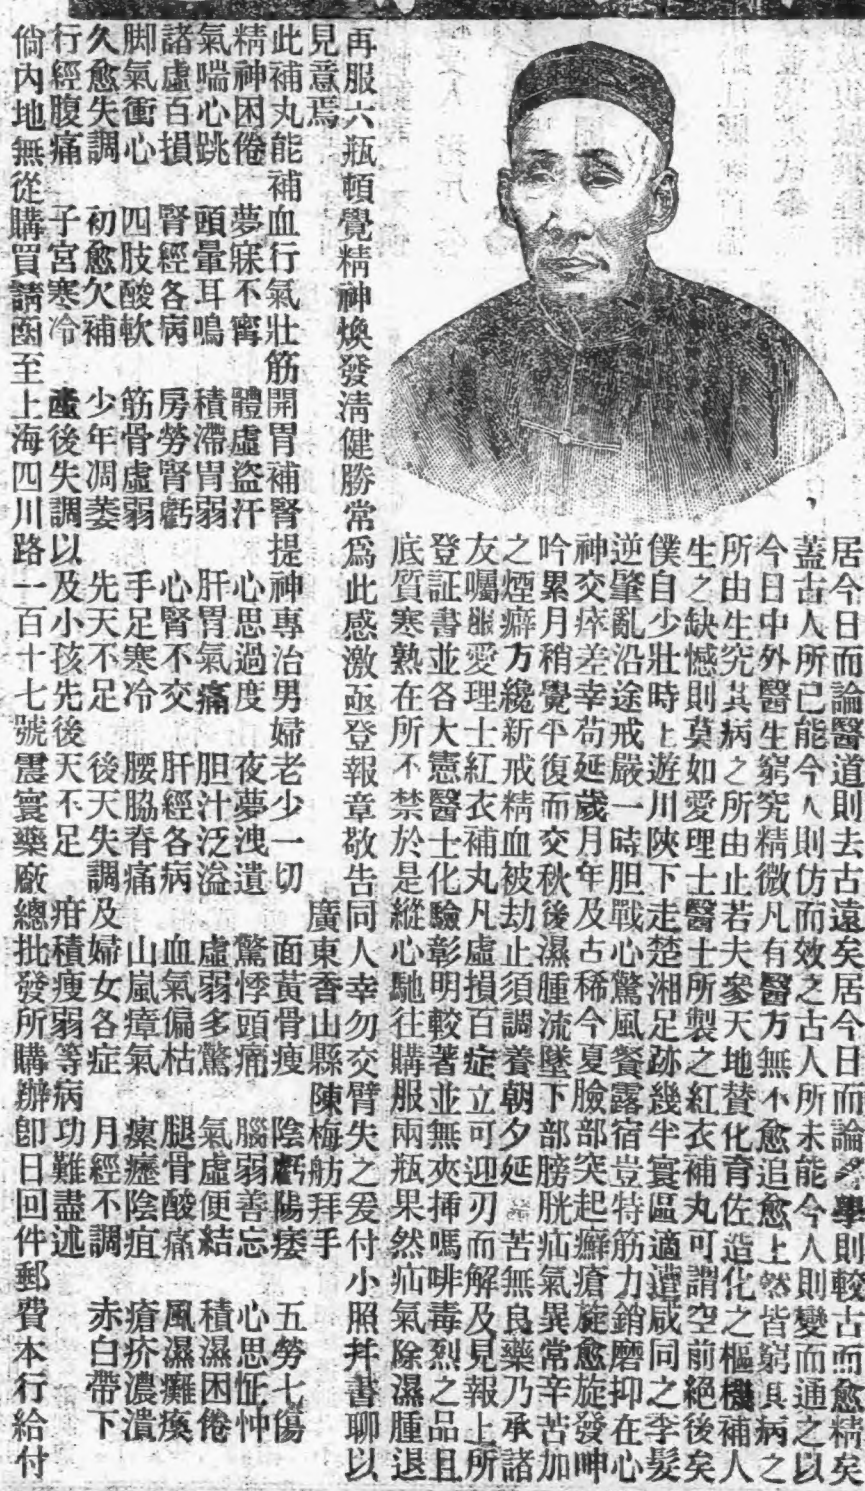 居今日而論醫道則去古遠矣居今日而論學則較古而愈精矣
蓋古人所已能今人則仿而效之古人所未能今人則變而通之以
今日中外醫生窮究精微凡有醫方無不愈追愈上然皆窮其病之
所由生究其病之所由止若夫參天地賛化育佐造化之樞機補人
生之缺憾則莫如愛理士醫士所製之紅衣補丸可謂空前絕後矣
僕自少壯時上遊川陝下走楚湘足跡幾半寰區適遭咸同之季髮
逆肇亂沿途戒嚴一時胆戰心驚風餐露宿豈特筋力銷磨抑在心
神交瘁差幸苟延歲月年及古稀今夏臉部突起癬瘡旋愈旋發呻
吟累月稍覺平復而交秋後濕腫流墜下部膀胱疝氣異常辛苦加
之煙癖方纔新戒精血被劫止須調養朝夕延 苦無良藥乃承諸
友囑服愛理士紅衣補丸凡虛損百症立可迎刃而解及見報上所
登証書並各大憲醫士化驗彰明較著並無夾揷嗎啡毒烈之品且
底質寒熟在所不禁於是縱心馳往購服兩瓶果然疝氣除濕腫退
再服六瓶頓覺精神煥發淸健勝常為此感激亟登報章敬告同人幸勿交臂失之爰付小照幷書聊以
見意焉 廣東香山縣陳梅舫拜手
此補丸能補血行氣壯筋開胃補腎提神專治男婦老少一切 面黃骨瘦 陰虧陽痿 五勞七傷
精神困倦 夢寐不甯 體虛盜汗 心思過度 夜夢洩遺 驚悸頭痛 腦弱善忘 心思怔忡
氣喘心跳 頭暈耳鳴 積滯胃弱 肝胃氣痛 胆汁泛溢 虛弱多驚 氣虛便結 積濕困倦
諸虛百損 腎經各病 房勞腎虧 心腎不交 肝經各病 血氣偏枯 腿骨酸痛 風濕癱瘓
脚氣衝心 四肢酸軟 筋骨虛弱 手足寒冷 腰脇脊痛 山嵐瘴氣 瘰癧陰疽 瘡疥濃潰
久愈失調 初愈欠補 少年凋萎 先天不足 後天失調及婦女各症 月經不調 赤白帶下
行經腹痛 子宮寒冷 產後失調以及小孩先後天不足 疳積瘦弱等病功難盡述
倘內地無從購買請函至上海四川路一百十七號震寰藥廠總批發所購辦卽日回件郵費本行給付